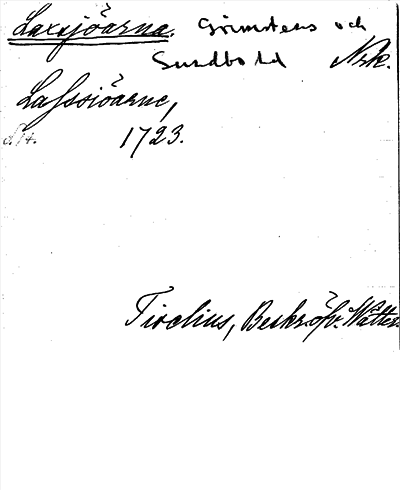 Laxsjöarna. Grimstens och
Sundbo hd Nrk.
Lassiöarne,
1723.
Tiselius, Beskr. öfv. Wätter